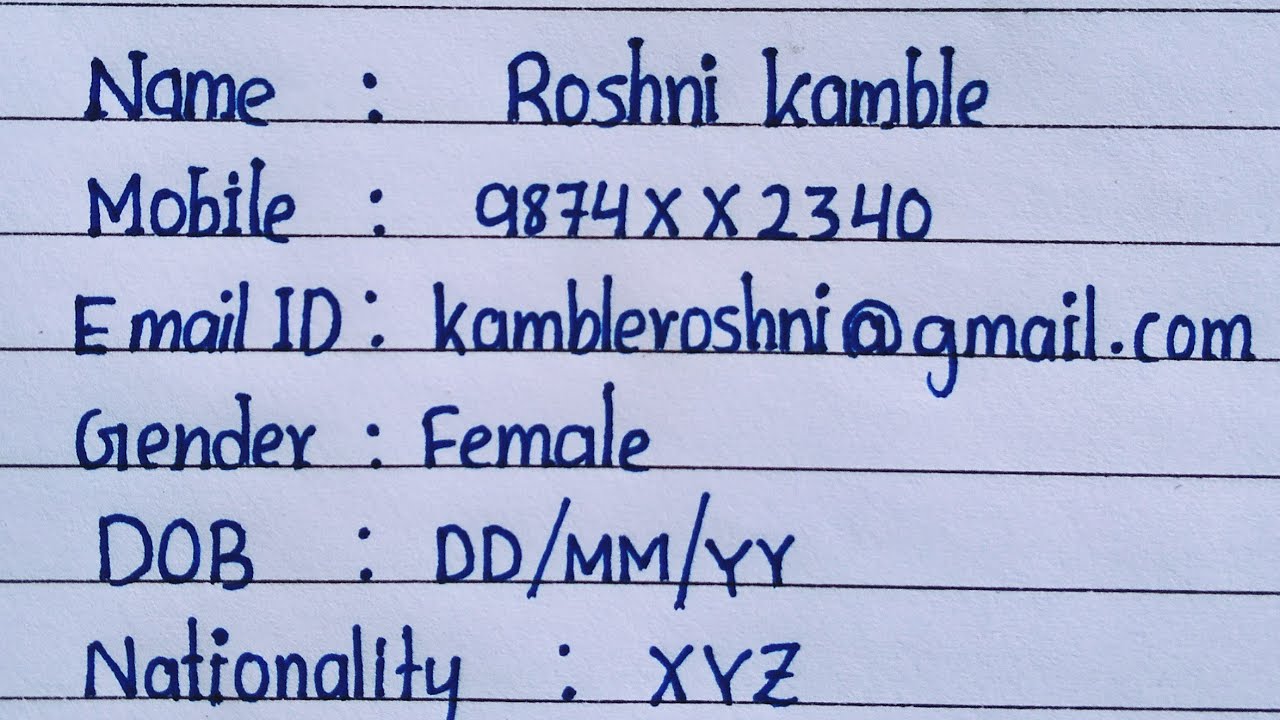 Name : Roshni Kamble
Mobile : 9874XX2340
Email ID : kambleroshni@gmail.com
Gender : Female
DOB : DD/MM/YY
Nationality : XYZ